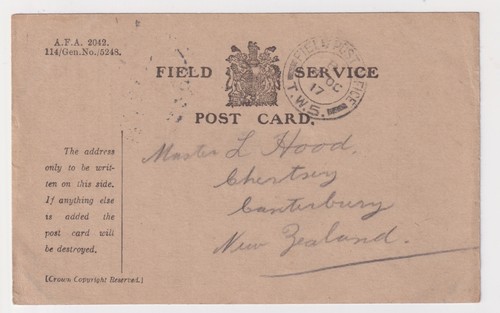 A.F.A. 2042.
114/Gen.No./5248.
FIELD SERVICE
POST CARD.
FIELD POST OFFICE
OC
17
T.W.S.
The address
only to be writ-
ten on this side.
If anything else
is added the
post card will
be destroyed.
[Crown Copyright Reserved.]
Master L Hood.
Chertsey
Canterbury
New Zealand.